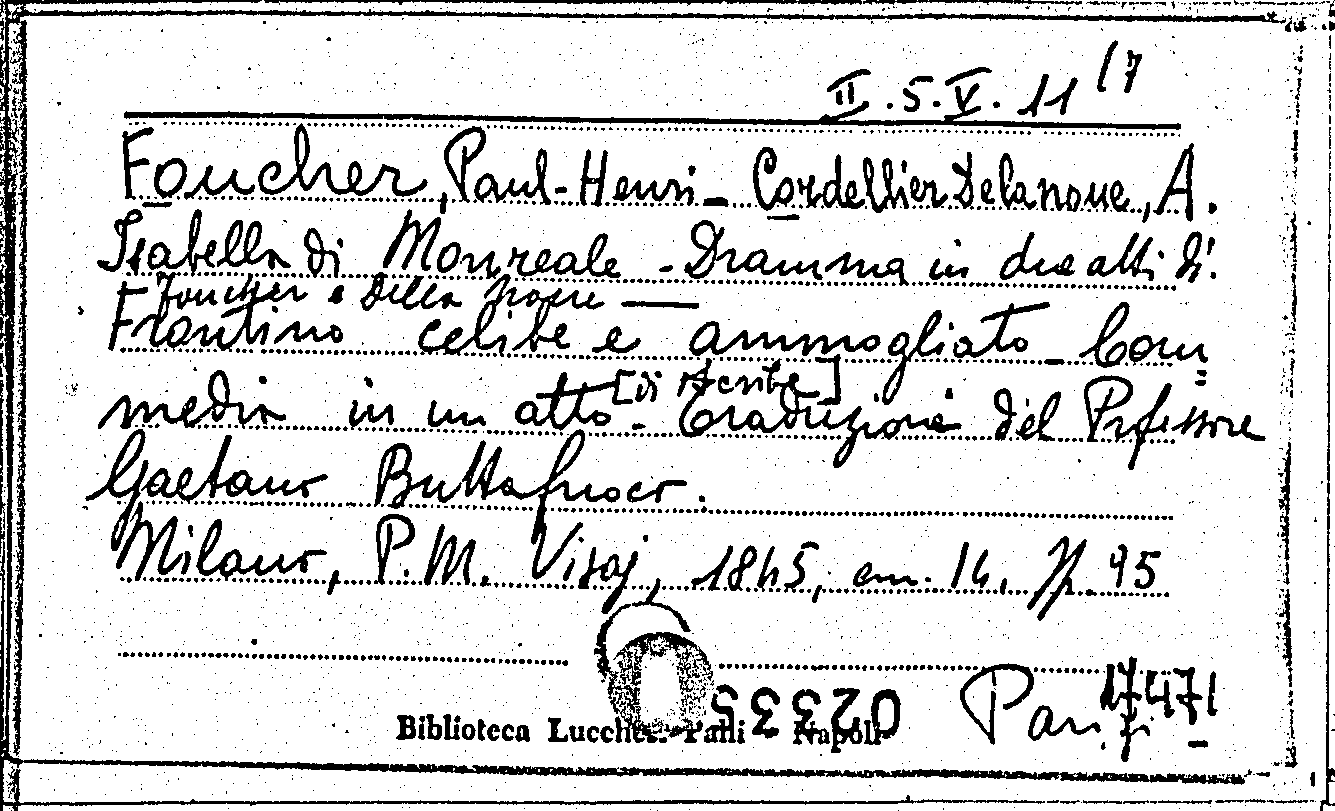 II.5.V.11 (7
Foucher, Paul-Henri - Cordellier Delanoue, A.
Isabella di Monreale - Dramma in due atti di
Foucher e Della
Frontino celibe e ammogliato - Com=
media in un atto [di Scribe] - Traduzione del Professore
Gaetano Buttafuoco.
Milano, P.M. Visaj, 1845, cm. 14, pp. 95
02335
Parigi
17471
Biblioteca Lucchesi Palli Napoli